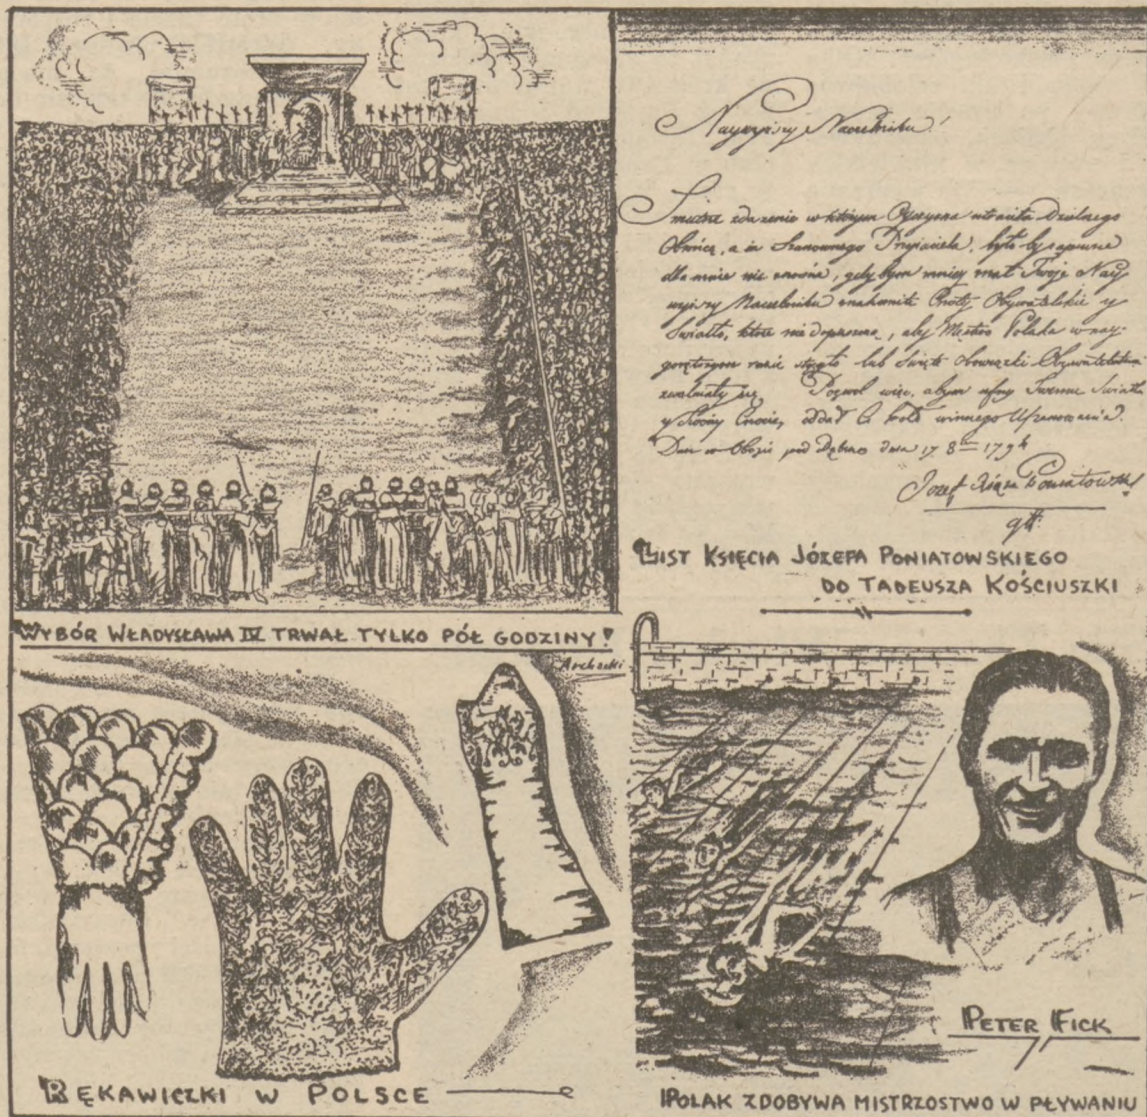 WYBÓR WŁADYSŁAWA IV TRWAŁ TYLKO PÓŁ GODZINY!
Naywyższy Naczelniku!
Smutne zdarzenie w którym Oyczyzna utraciła Dzielnego
Obrońcę, a ia Szanownego Przyiaciela, było by zapewne
dla mnie nie znośne, gdy bym mniey znał Twoje Nay
wyższy Naczelniku znakomite Cnoty Obywatelskie y
Światło, które nie dopuszczą, aby Męstwo Polaka w nay-
gorętszym razie lub Święte obowiązki Obywatelskie
Pozwol więc, abym ufny Twemu Światłu
y Cnocie, oddał Ci hołd winnego Uszanowania.
Dan w Obozie pod dnia 17 8 1794
Jozef Xiąże Poniatowski
LIST KSIĘCIA JÓZEFA PONIATOWSKIEGO
DO TADEUSZA KOŚCIUSZKI
RĘKAWICZKI W POLSCE
PETER FICK
POLAK ZDOBYWA MISTRZOSTWO W PŁYWANIU